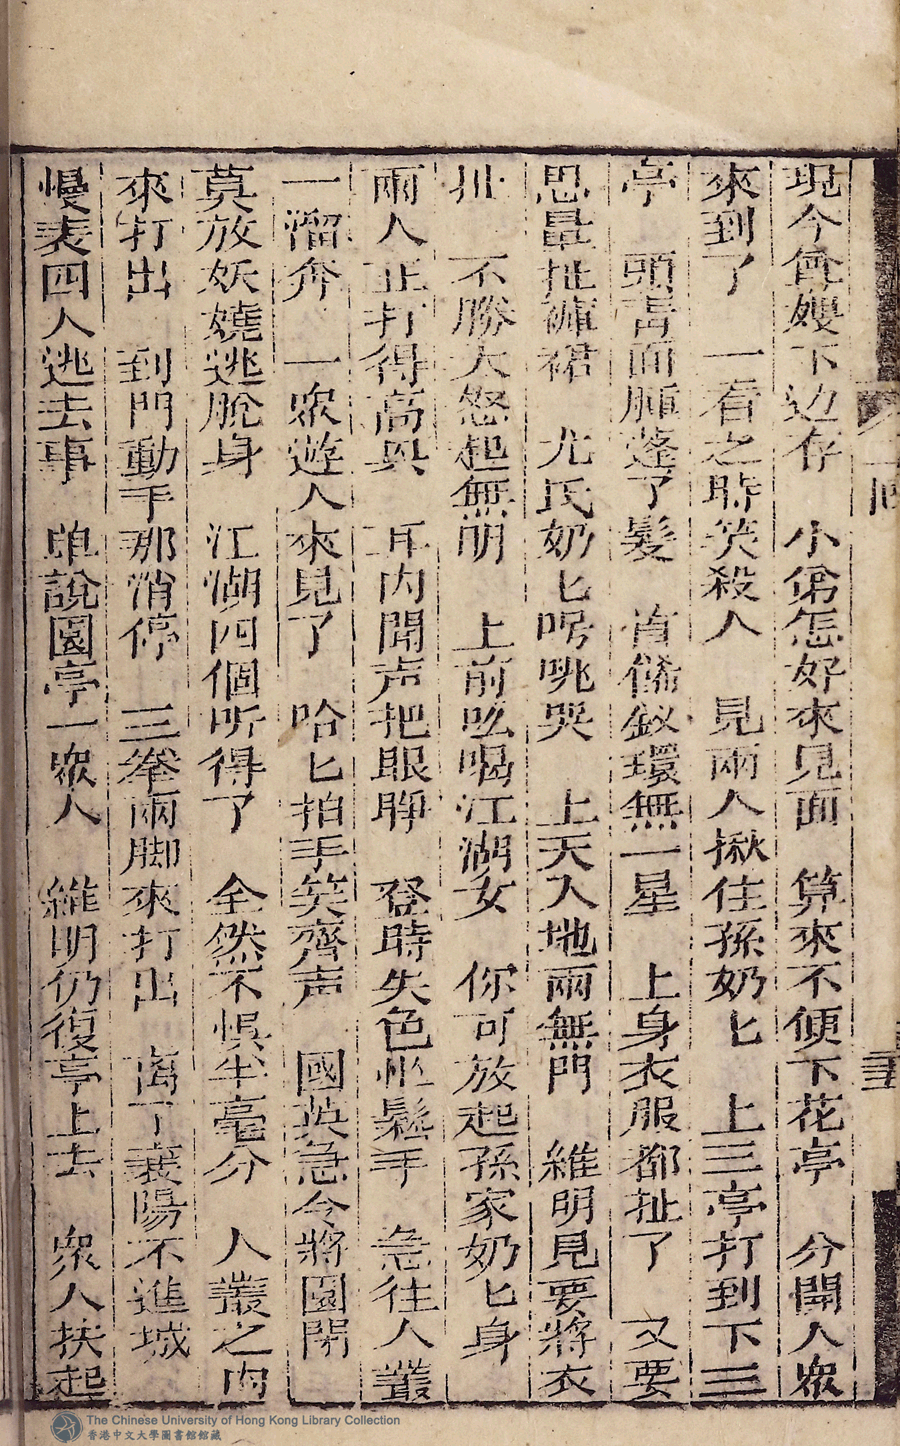 現今會嫂下边存　小弟怎好來見面　算來不便下花亭　分開人眾
來到了　一看之時笑殺人　見兩人揪住孫奶匕　上三亭打到下三
亭　頭青面腫蓬了髮　首餙釵環無一星　上身衣服都扯了　又要
思量扯褲裙　尤氏奶匕嚎咷哭　上天入地兩無門　維明見要將衣
扯　不勝大怒起無明　上前吆喝江湖女　你可放起孫家奶匕身
兩人正打得高興　耳内聞声把眼睜　登時失色忙鬆手　急往人叢
一溜奔　一眾遊人來見了　哈匕拍手笑齊声　國英急令將園閉
莫放妖嬈逃脫身　江湖四個听得了　全然不惧半毫分　人叢之内
來打出　到門動手那消停　三拳兩脚來打出　离了襄陽不進城
慢表四人逃去事　单說園亭一眾人　維明仍復亭上去　眾人扶起
二回
The Chinese University of Hong Kong Library Collection
香港中文大學圖書館館藏